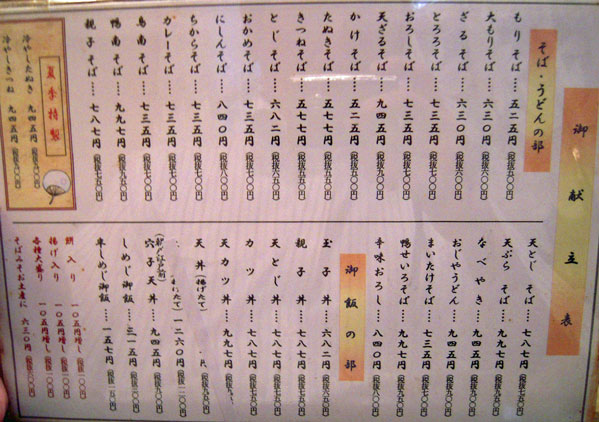 御献立表
そば・うどんの部
もりそば……五二五円(税抜五〇〇円)
大もりそば……六三〇円(税抜六〇〇円)
ざるそば……六三〇円(税抜六〇〇円)
とろろそば……七三五円(税抜七〇〇円)
おろしそば……七三五円(税抜七〇〇円)
天ざるそば……九四五円(税抜九〇〇円)
かけそば……五二五円(税抜五〇〇円)
たぬきそば……五七七円(税抜五五〇円)
きつねそば……五七七円(税抜五五〇円)
とじそば……六八二円(税抜六五〇円)
おかめそば……七三五円(税抜七〇〇円)
にしんそば……八四〇円(税抜八〇〇円)
ちからそば……七三五円(税抜七〇〇円)
カレーそば……七三五円(税抜七〇〇円)
鳥南そば……七三五円(税抜七〇〇円)
鴨南そば……九九七円(税抜九五〇円)
親子そば……七八七円(税抜七五〇円)
夏季特製
冷やしたぬき 九四五円(税抜九〇〇円)
冷やしきつね 九四五円(税抜九〇〇円)
天とじそば……七八七円(税抜七五〇円)
天ぷらそば……九九七円(税抜九五〇円)
なべやき……九四五円(税抜九〇〇円)
おじやうどん……九四五円(税抜九〇〇円)
まいたけそば……七三五円(税抜七〇〇円)
鴨せいろそば……九九七円(税抜九五〇円)
辛味おろし……八四〇円(税抜八〇〇円)
御飯の部
玉子丼……六八二円(税抜六五〇円)
親子丼……七八七円(税抜七五〇円)
天とじ丼……七八七円(税抜七五〇円)
カツ丼……七八七円(税抜七五〇円)
天カツ丼……九九七円(税抜
天丼(揚げたて)
一二六〇円
穴子天丼……九四五円(税抜九〇〇円)
しめじ御飯……三一五円(税抜三〇〇円)
車しめじ御飯……一五七円(税抜一五〇円)
餅入り 一〇五円増し(税抜一〇〇円)
揚げ入り 一〇五円増し(税抜一〇〇円)
各種大盛り 一〇五円増し(税抜一〇〇円)
そばみそお土産に 六三〇円(税抜六〇〇円)